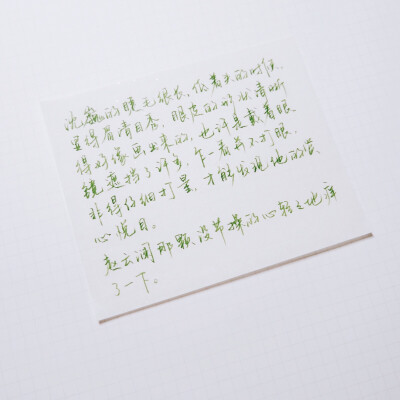 沈巍的睫毛很长，低着头的时候，
显得眉清目秀，眼皮的形状清晰
得好像画出来的，也许是戴着眼
镜遮挡了许多，乍一看并不打眼，
非得仔细打量，才能发现他的赏
心悦目。
赵云澜那颗没节操的心轻轻地痒
了一下。